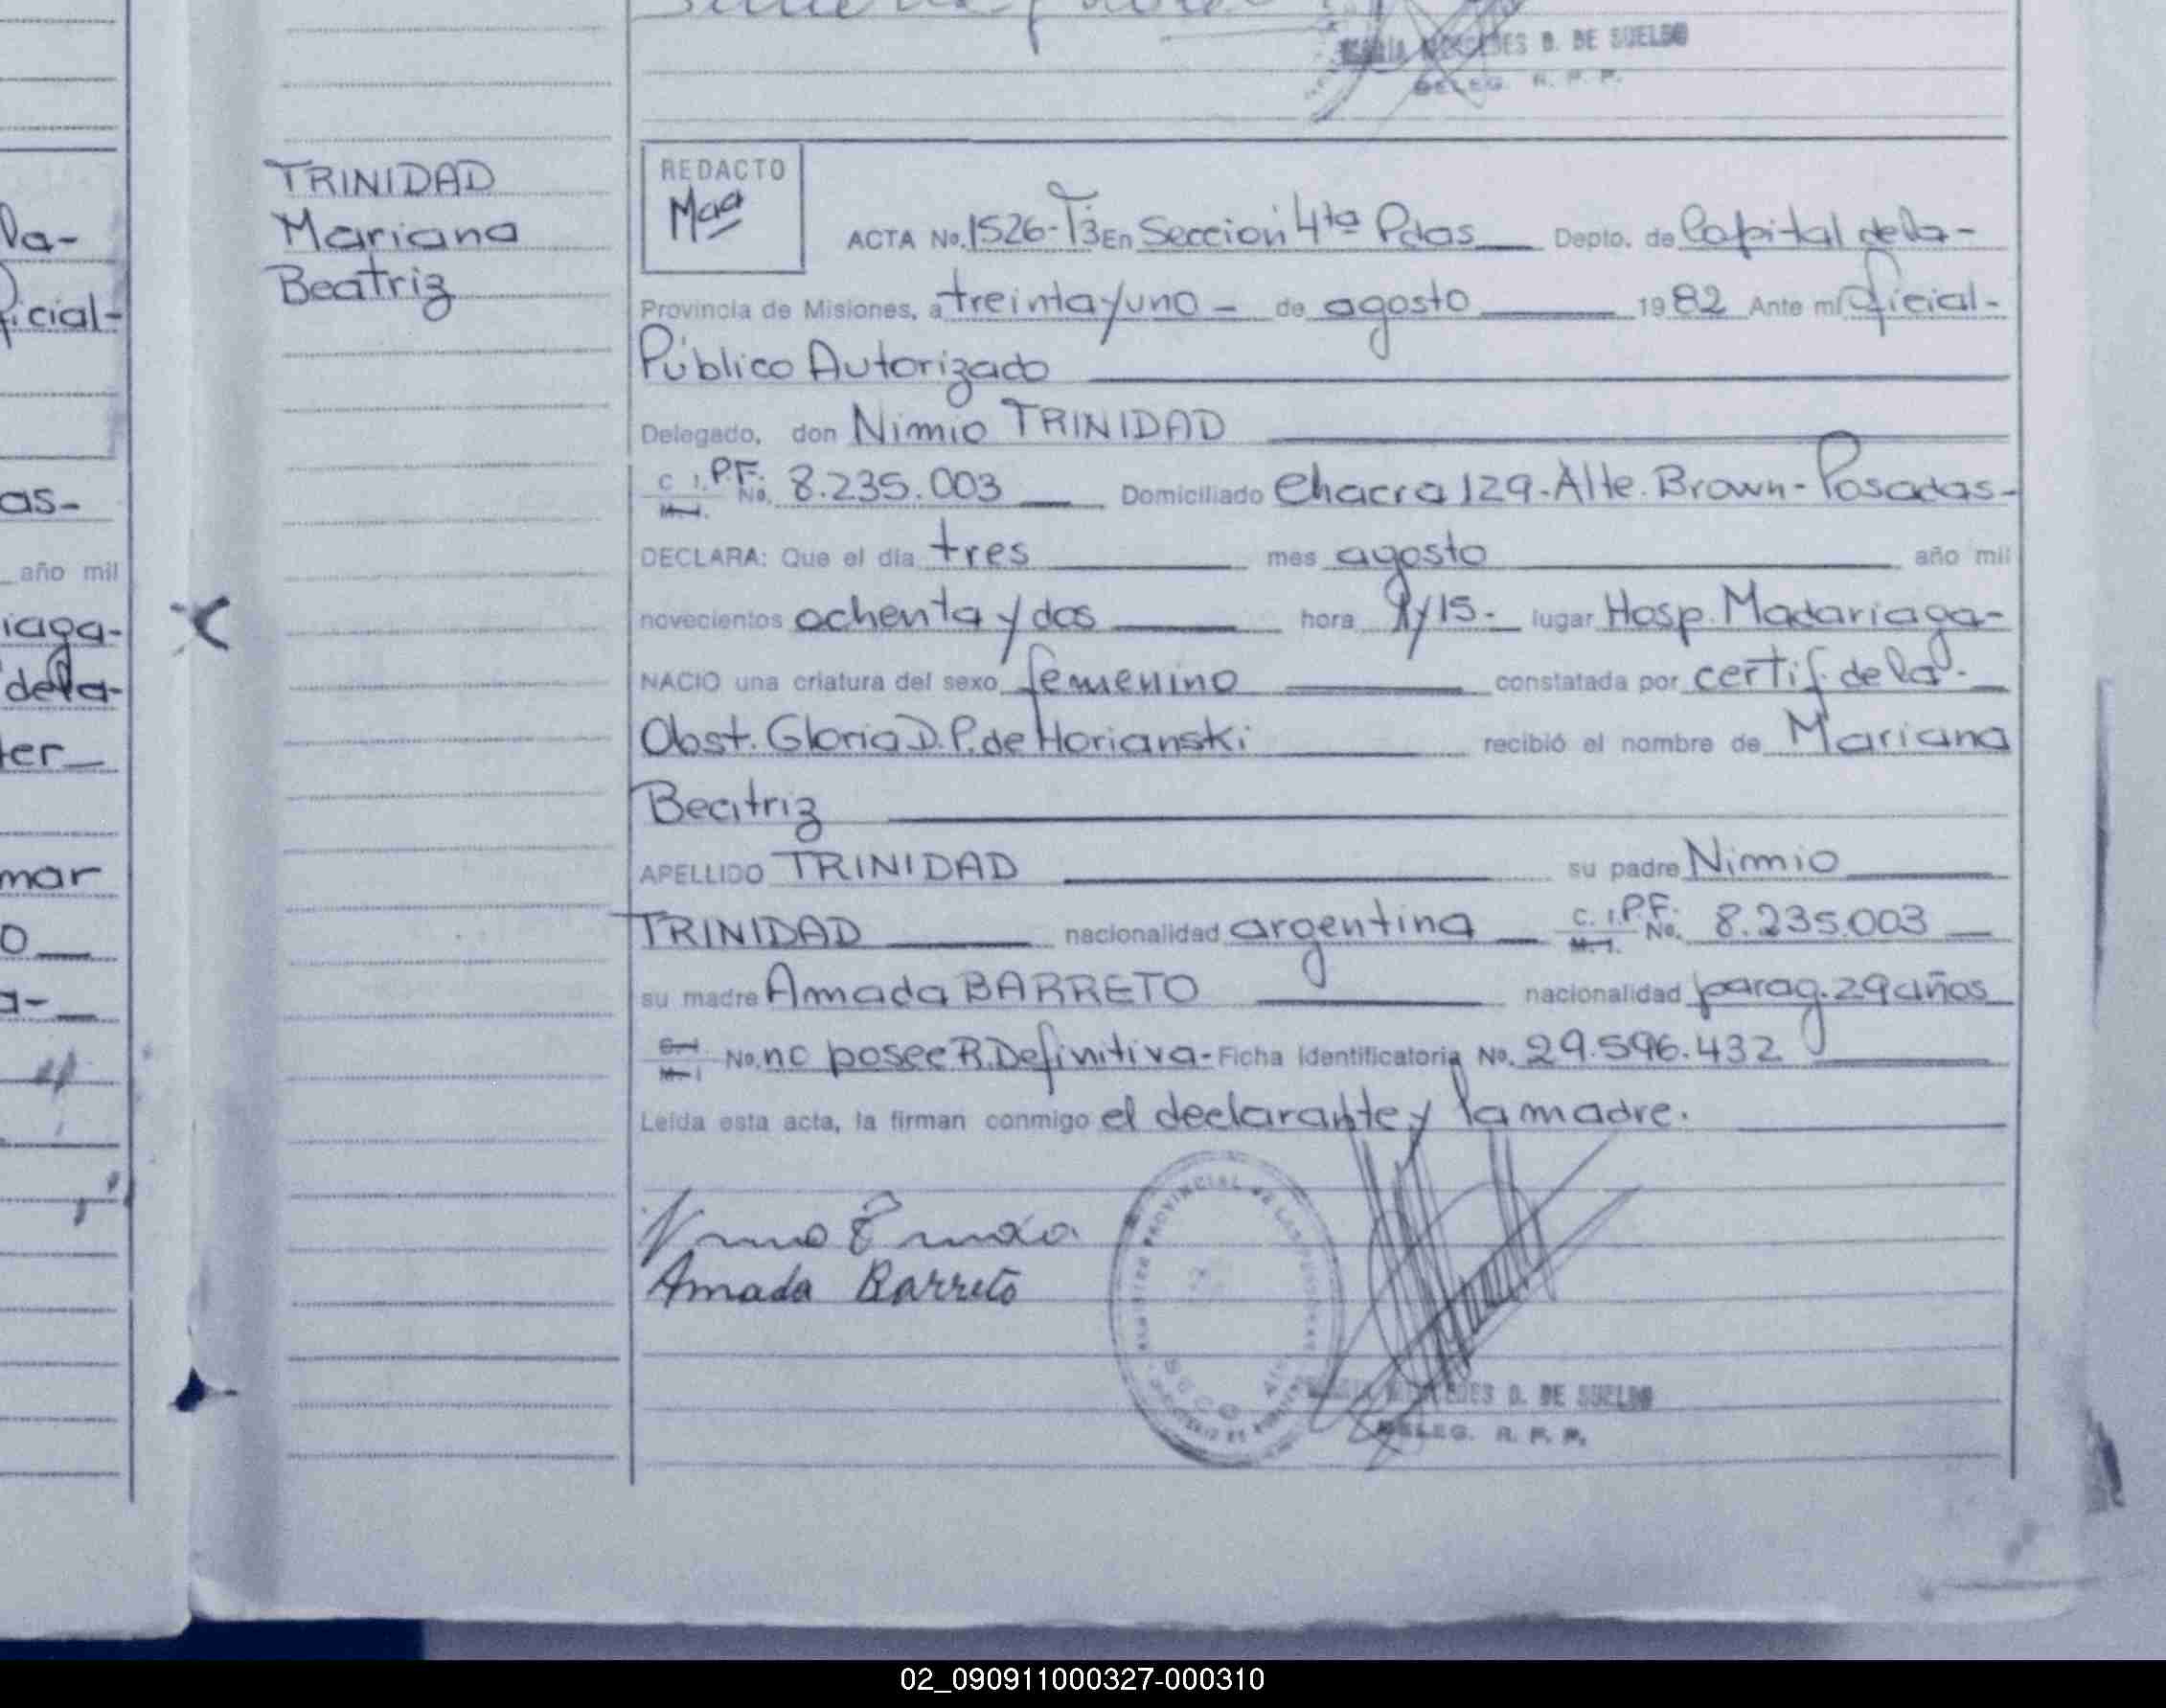 MARÍA MERCEDES D. DE SUELDO
DELEG. R. P. P.
TRINIDAD
Mariana
Beatriz
REDACTO
ACTA No. 1526-T3 En Sección 4ta Pdas Depto. de Capital de la-
Provincia de Misiones, a treinta y uno - de agosto 1982 Ante mí Oficial-
Público Autorizado
Delegado, don Nimio TRINIDAD
C. I. P.F. No. 8.235.003 Domiciliado Chacra 129-Alte. Brown-Posadas-
M. I.
DECLARA: Que el día tres mes agosto año mil
novecientos ochenta y dos hora 9 y 15- lugar Hosp. Madariaga-
NACIO una criatura del sexo femenino constatada por certif. de la-
Obst. Gloria D. P. de Horianski recibió el nombre de Mariana
Beatriz
APELLIDO TRINIDAD su padre Nimio
TRINIDAD nacionalidad argentina C. I. P.F. No. 8.235.003
M. I.
su madre Amada BARRETO nacionalidad parag. 29 años
C. I. No. no posee R. Definitiva- Ficha Identificatoria No. 29.596.432
M. I.
Leída esta acta, la firman conmigo el declarante y la madre.
Amada Barreto
MARÍA MERCEDES D. DE SUELDO
DELEG. R. P. P.
la-
icial-
as-
año mil
iaga-
dela-
ter
mar
o
a-
02_090911000327-000310